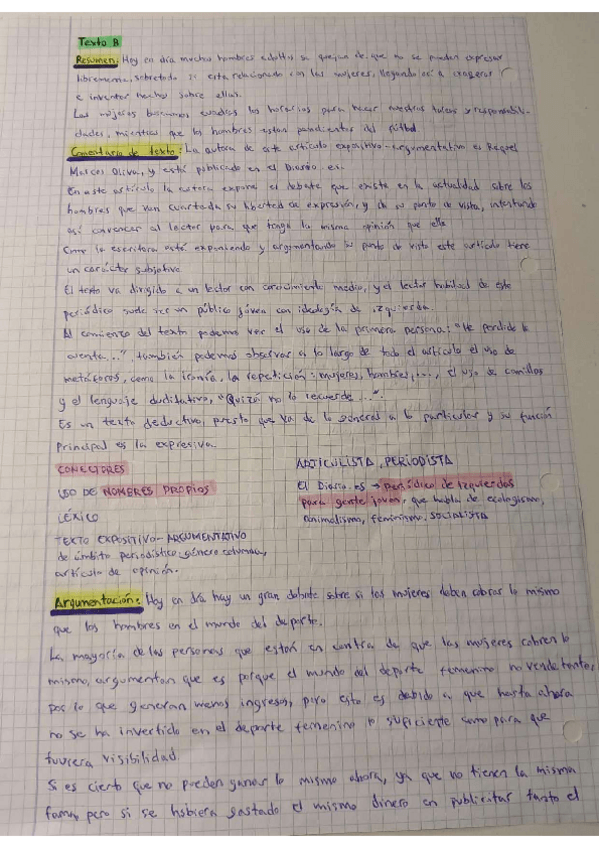 Texto B
Resumen: Hoy en día muchos hombres adultos se quejan de que no se pueden expresar
libremente, sobretodo si esta relacionado con las mujeres, llegando así a exagerar
e inventar hechos sobre ellas.
Las mujeres buscamos los horarios para hacer nuestras tareas y responsabili-
dades, mientras que los hombres estan pendientes del fútbol
Comentario de texto: La autora de este artículo expositivo-argumentativo es Raquel
Marcos Oliva, y está publicado en el Diario.es.
En este artículo la autora expone el debate que existe en la actualidad sobre los
hombres que ven cuartada su libertad de expresión, y da su punto de vista, intentando
así convencer al lector para que tenga la misma opinión que ella
Como la escritora está exponiendo y argumentando su punto de vista este artículo tiene
un carácter subjetivo.
El texto va dirigido a un lector con conocimiento medio, y el lector habitual de este
periódico suele ser un público jóven con ideología de izquierda.
Al comienzo del texto podemos ver el uso de la primera persona: "Me perdido la
cuenta..", también podemos observar a lo largo de todo el artículo el uso de
metáforas, como la ironía, la repetición: mujeres, hombres,..., el uso de comillas
y el lenguaje duditativo, "Quizá no lo recuerde ...".
Es un texto deductivo, puesto que va de lo general a lo particular y su función
Principal es la expresiva.
CONECTORES
USO DE NOMBRES PROPIOS
LÉXICO
TEXTO EXPOSITIVO-ARGUMENTATIVO
de ámbito periodístico género columna,
artículo de opinión.
ARTICULISTA, PERIODISTA
El Diario.es → periódico de izquierdas
para gente joven, que habla de ecologismo,
animalismo, feminismo, SOCIALISTA
Argumentación: Hoy en día hay un gran debate sobre si las mujeres deben cobrar lo mismo
que los hombres en el mundo del deporte.
La mayoría de las personas que están en contra de que las mujeres cobren lo
mismo, argumentan que es porque el mundo del deporte femenino no vende tanto,
por lo que generan menos ingresos, pero esto es debido a que hasta ahora
no se ha invertido en el deporte femenino lo suficiente como para que
tuviera visibilidad.
Si es cierto que no pueden ganar lo mismo ahora, ya que no tienen la misma
fama, pero si se hubiera gastado el mismo dinero en publicitar tanto el